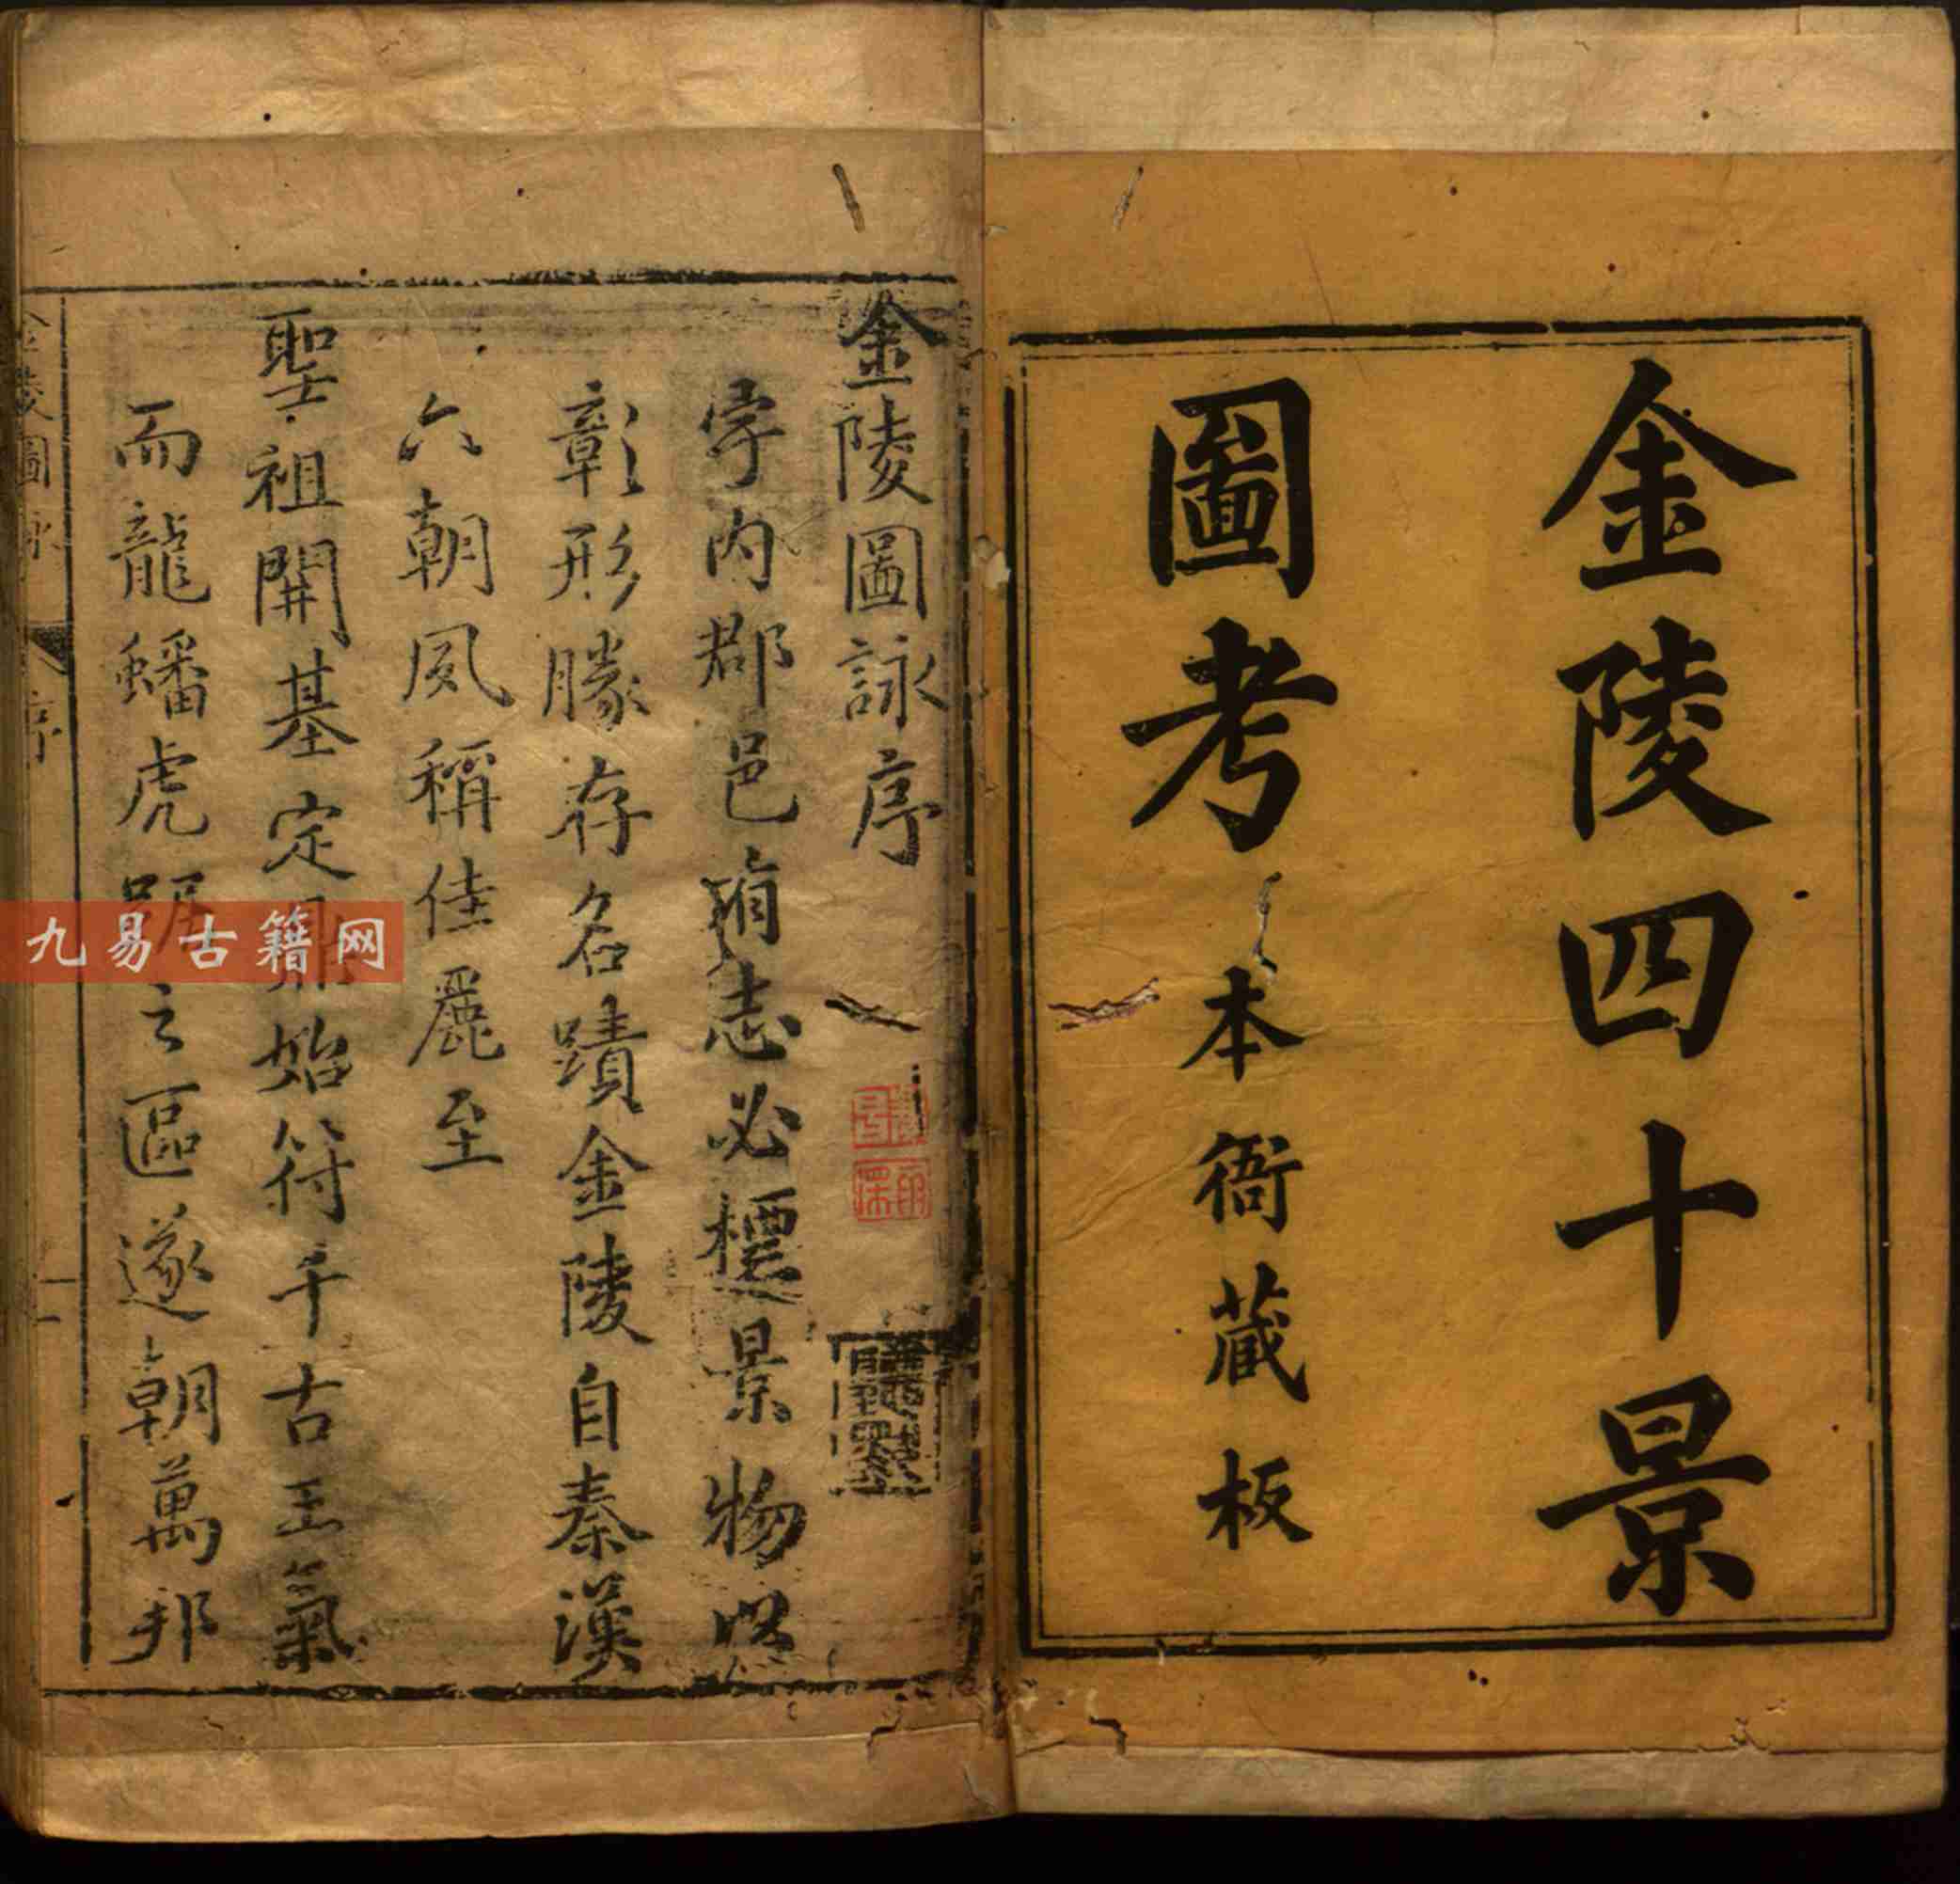 金陵四十景
圖考
本衙藏板
金陵圖詠序
宇內郡邑有志必標景物以
彰形勝存名蹟金陵自秦漢
六朝夙稱佳麗至
聖祖開基定鼎始符千古王氣
而龍蟠虎踞之區遂朝萬邦
金陵圖詠
序
一
九易古籍网